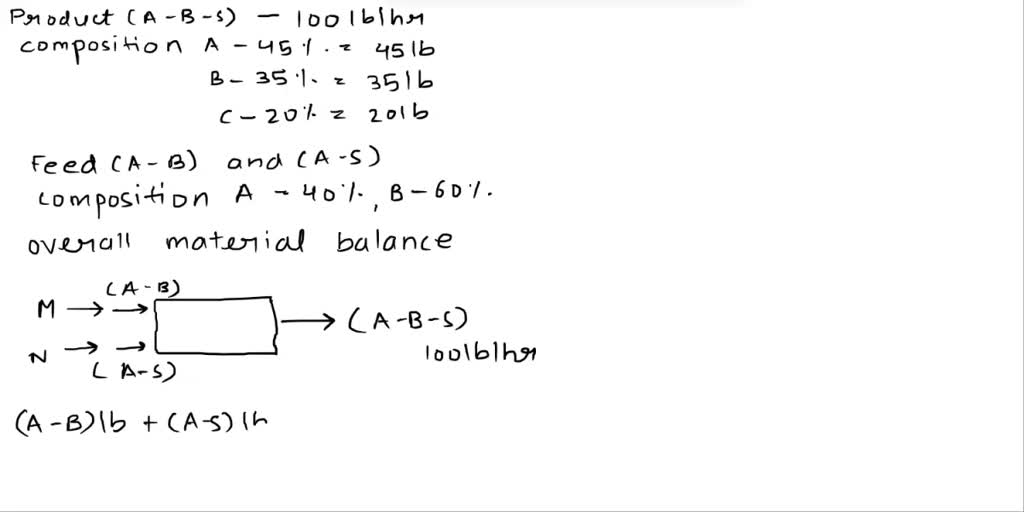 Product (A-B-S) - 100lb/hr
composition A - 45%. = 45lb
B - 35%. = 35lb
C - 20% = 20lb
Feed (A-B) and (A-S)
composition A - 40%, B - 60%.
overall material balance
(A-B)
M → → 
→ (A-B-S)
100lb/hr
N → →
(A-S)
(A-B)lb + (A-S)lh